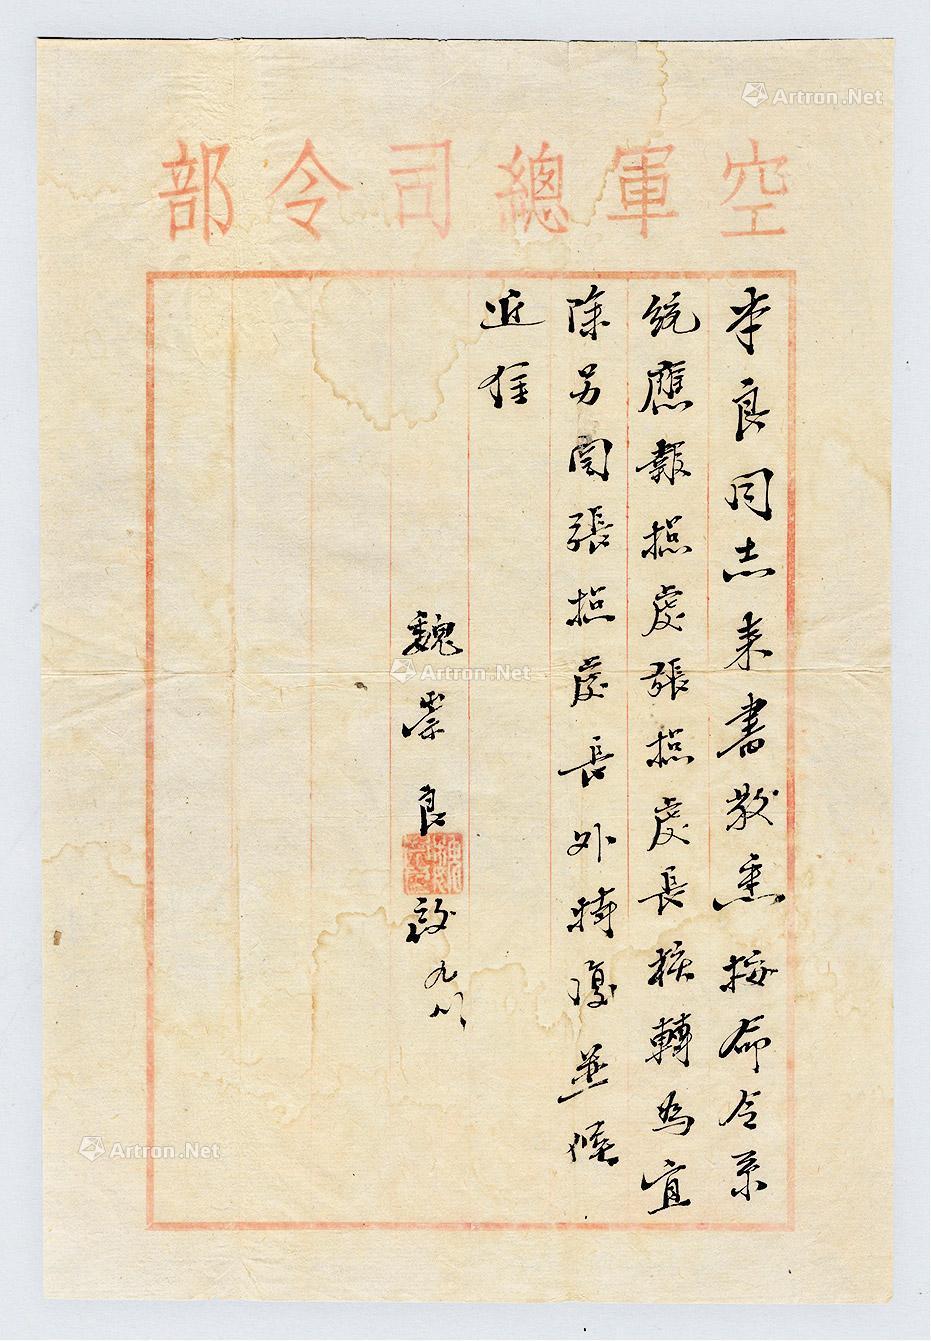 空軍總司令部
本良同志来書敬悉按命令系
統應報揔處張揔處長核轉為宜
除另函張揔處長外特復並候
近佳
魏崇良啟九八
Artron.Net
Artron.Net
Artron.Net